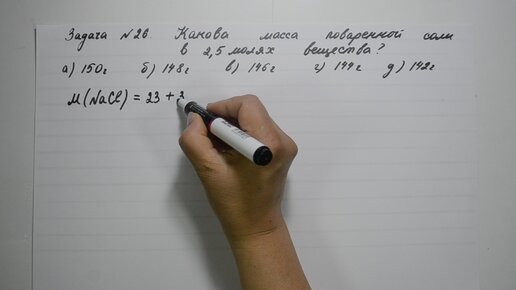 Задача №26. Какова масса поваренной соли
в 2,5 молях вещества?
а) 150г б) 148г в) 146г г) 144г д) 142г
M(NaCl) = 23 + 3